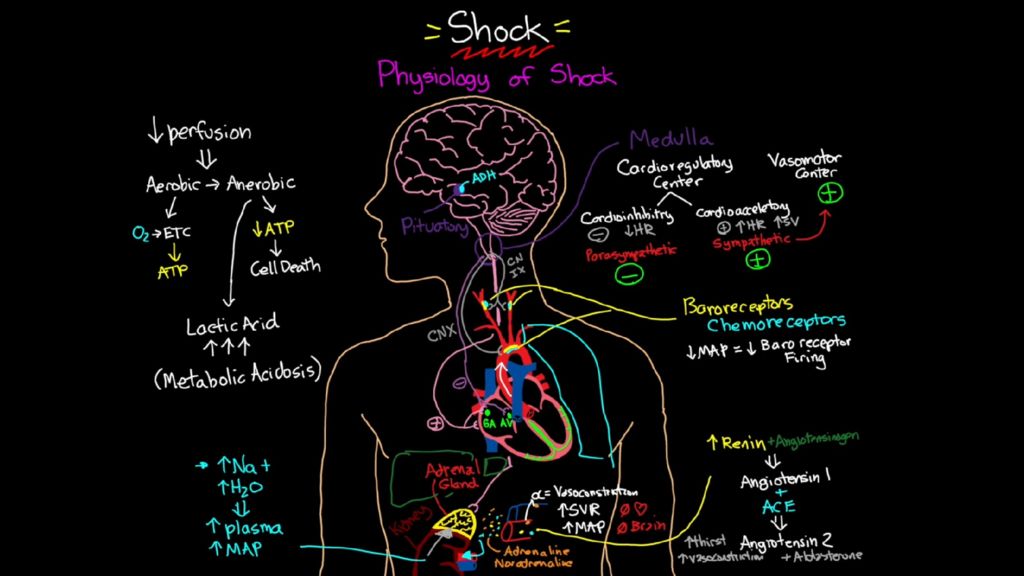 = Shock =
Physiology of Shock
↓perfusion
⇓
Aerobic → Anerobic
O₂→ETC
ATP
↓ATP
Cell Death
Lactic Acid
↑↑↑
(Metabolic Acidosis)
ADH
Pituatory
Medulla
Cardioregulatory
Center
Vasomotor
Center
+
Cardioinhibitry
- ↓HR
Parasympathetic
-
Cardioacceletory
+ ↑HR ↑SV
Sympathetic
+
CN
IX
CNX
Baroreceptors
Chemoreceptors
↓MAP = ↓ Baroreceptor
Firing
-
+
SA AV
→ ↑Na+
↑H₂O
⇓
↑plasma
↑MAP
Adrenal
Gland
Kidney
α= Vasoconstriction
↑SVR
↑MAP
Ø ♡
Ø Brain
Adrenaline
Noradrenaline
↑Renin +Angiotensinogen
⇓
Angiotensin 1
+
ACE
⇓
↑thirst Angiotensin 2
↑vasoconstriction + Aldosterone